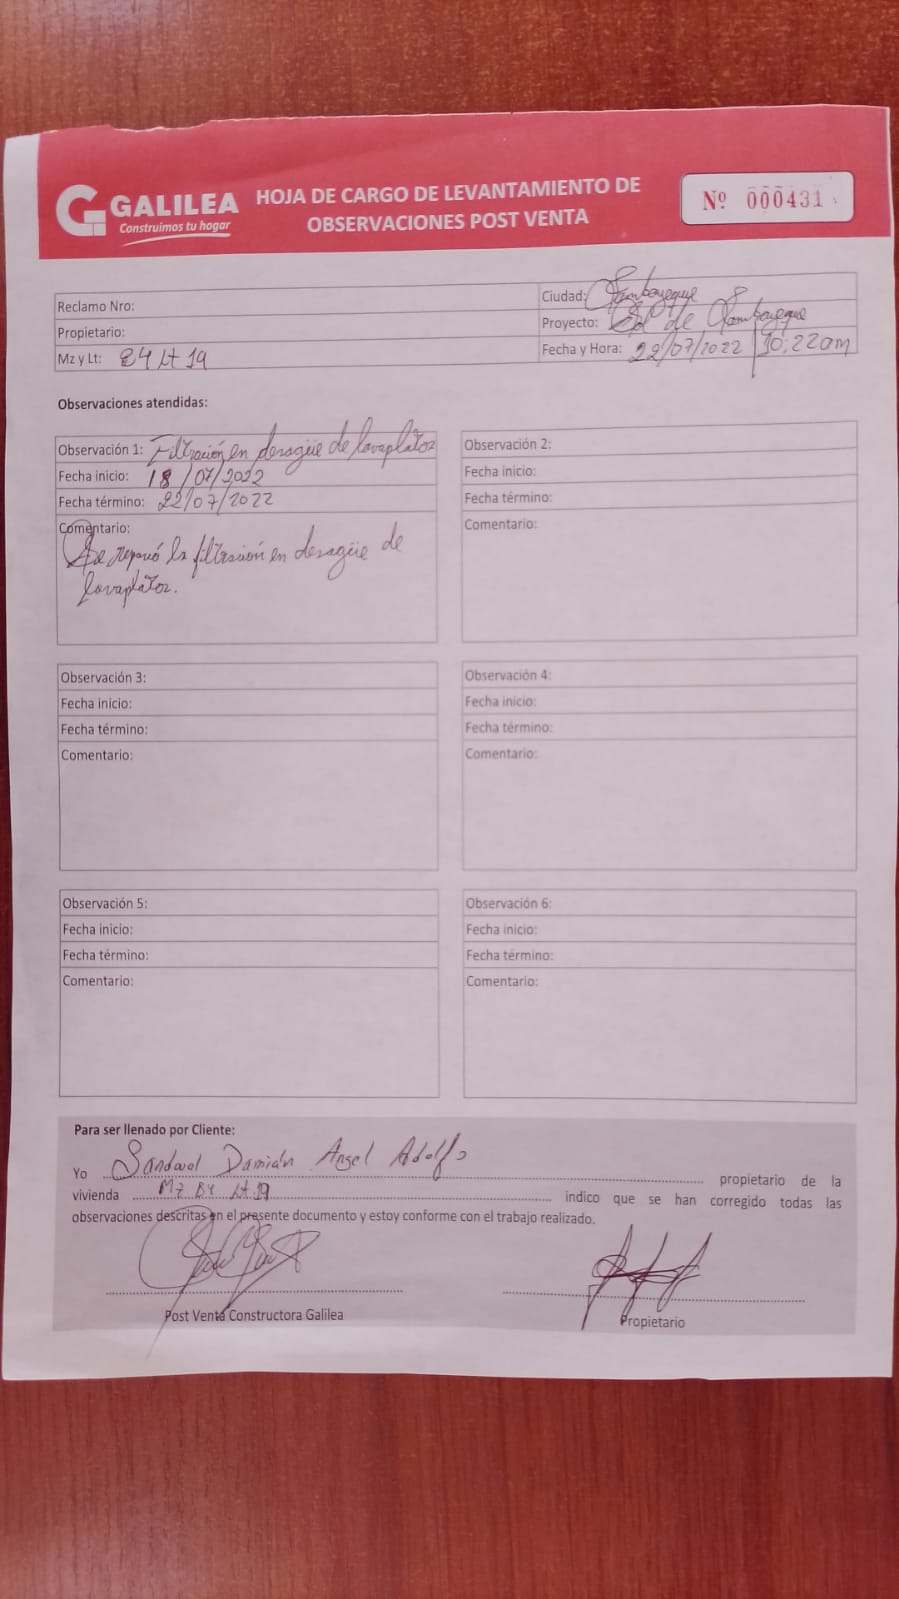 GALILEA
Construimos tu hogar
HOJA DE CARGO DE LEVANTAMIENTO DE
OBSERVACIONES POST VENTA
Nº 000431
Reclamo Nro:
Propietario:
Mz y Lt: 84 Lt 19
Ciudad: Lambayeque
Proyecto: Sol de Lambayeque
Fecha y Hora: 22/07/2022 10:22am
Observaciones atendidas:
Observación 1: Filtración en desagüe de lavaplatos
Fecha inicio: 18/07/2022
Fecha término: 22/07/2022
Comentario:
Se reparó la filtración en desagüe de
lavaplatos.
Observación 2:
Fecha inicio:
Fecha término:
Comentario:
Observación 3:
Fecha inicio:
Fecha término:
Comentario:
Observación 4:
Fecha inicio:
Fecha término:
Comentario:
Observación 5:
Fecha inicio:
Fecha término:
Comentario:
Observación 6:
Fecha inicio:
Fecha término:
Comentario:
Para ser llenado por Cliente:
Yo Sandoval Damián Angel Adolfo propietario de la
vivienda Mz B4 Lt 19 indico que se han corregido todas las
observaciones descritas en el presente documento y estoy conforme con el trabajo realizado.
Post Venta Constructora Galilea
Propietario